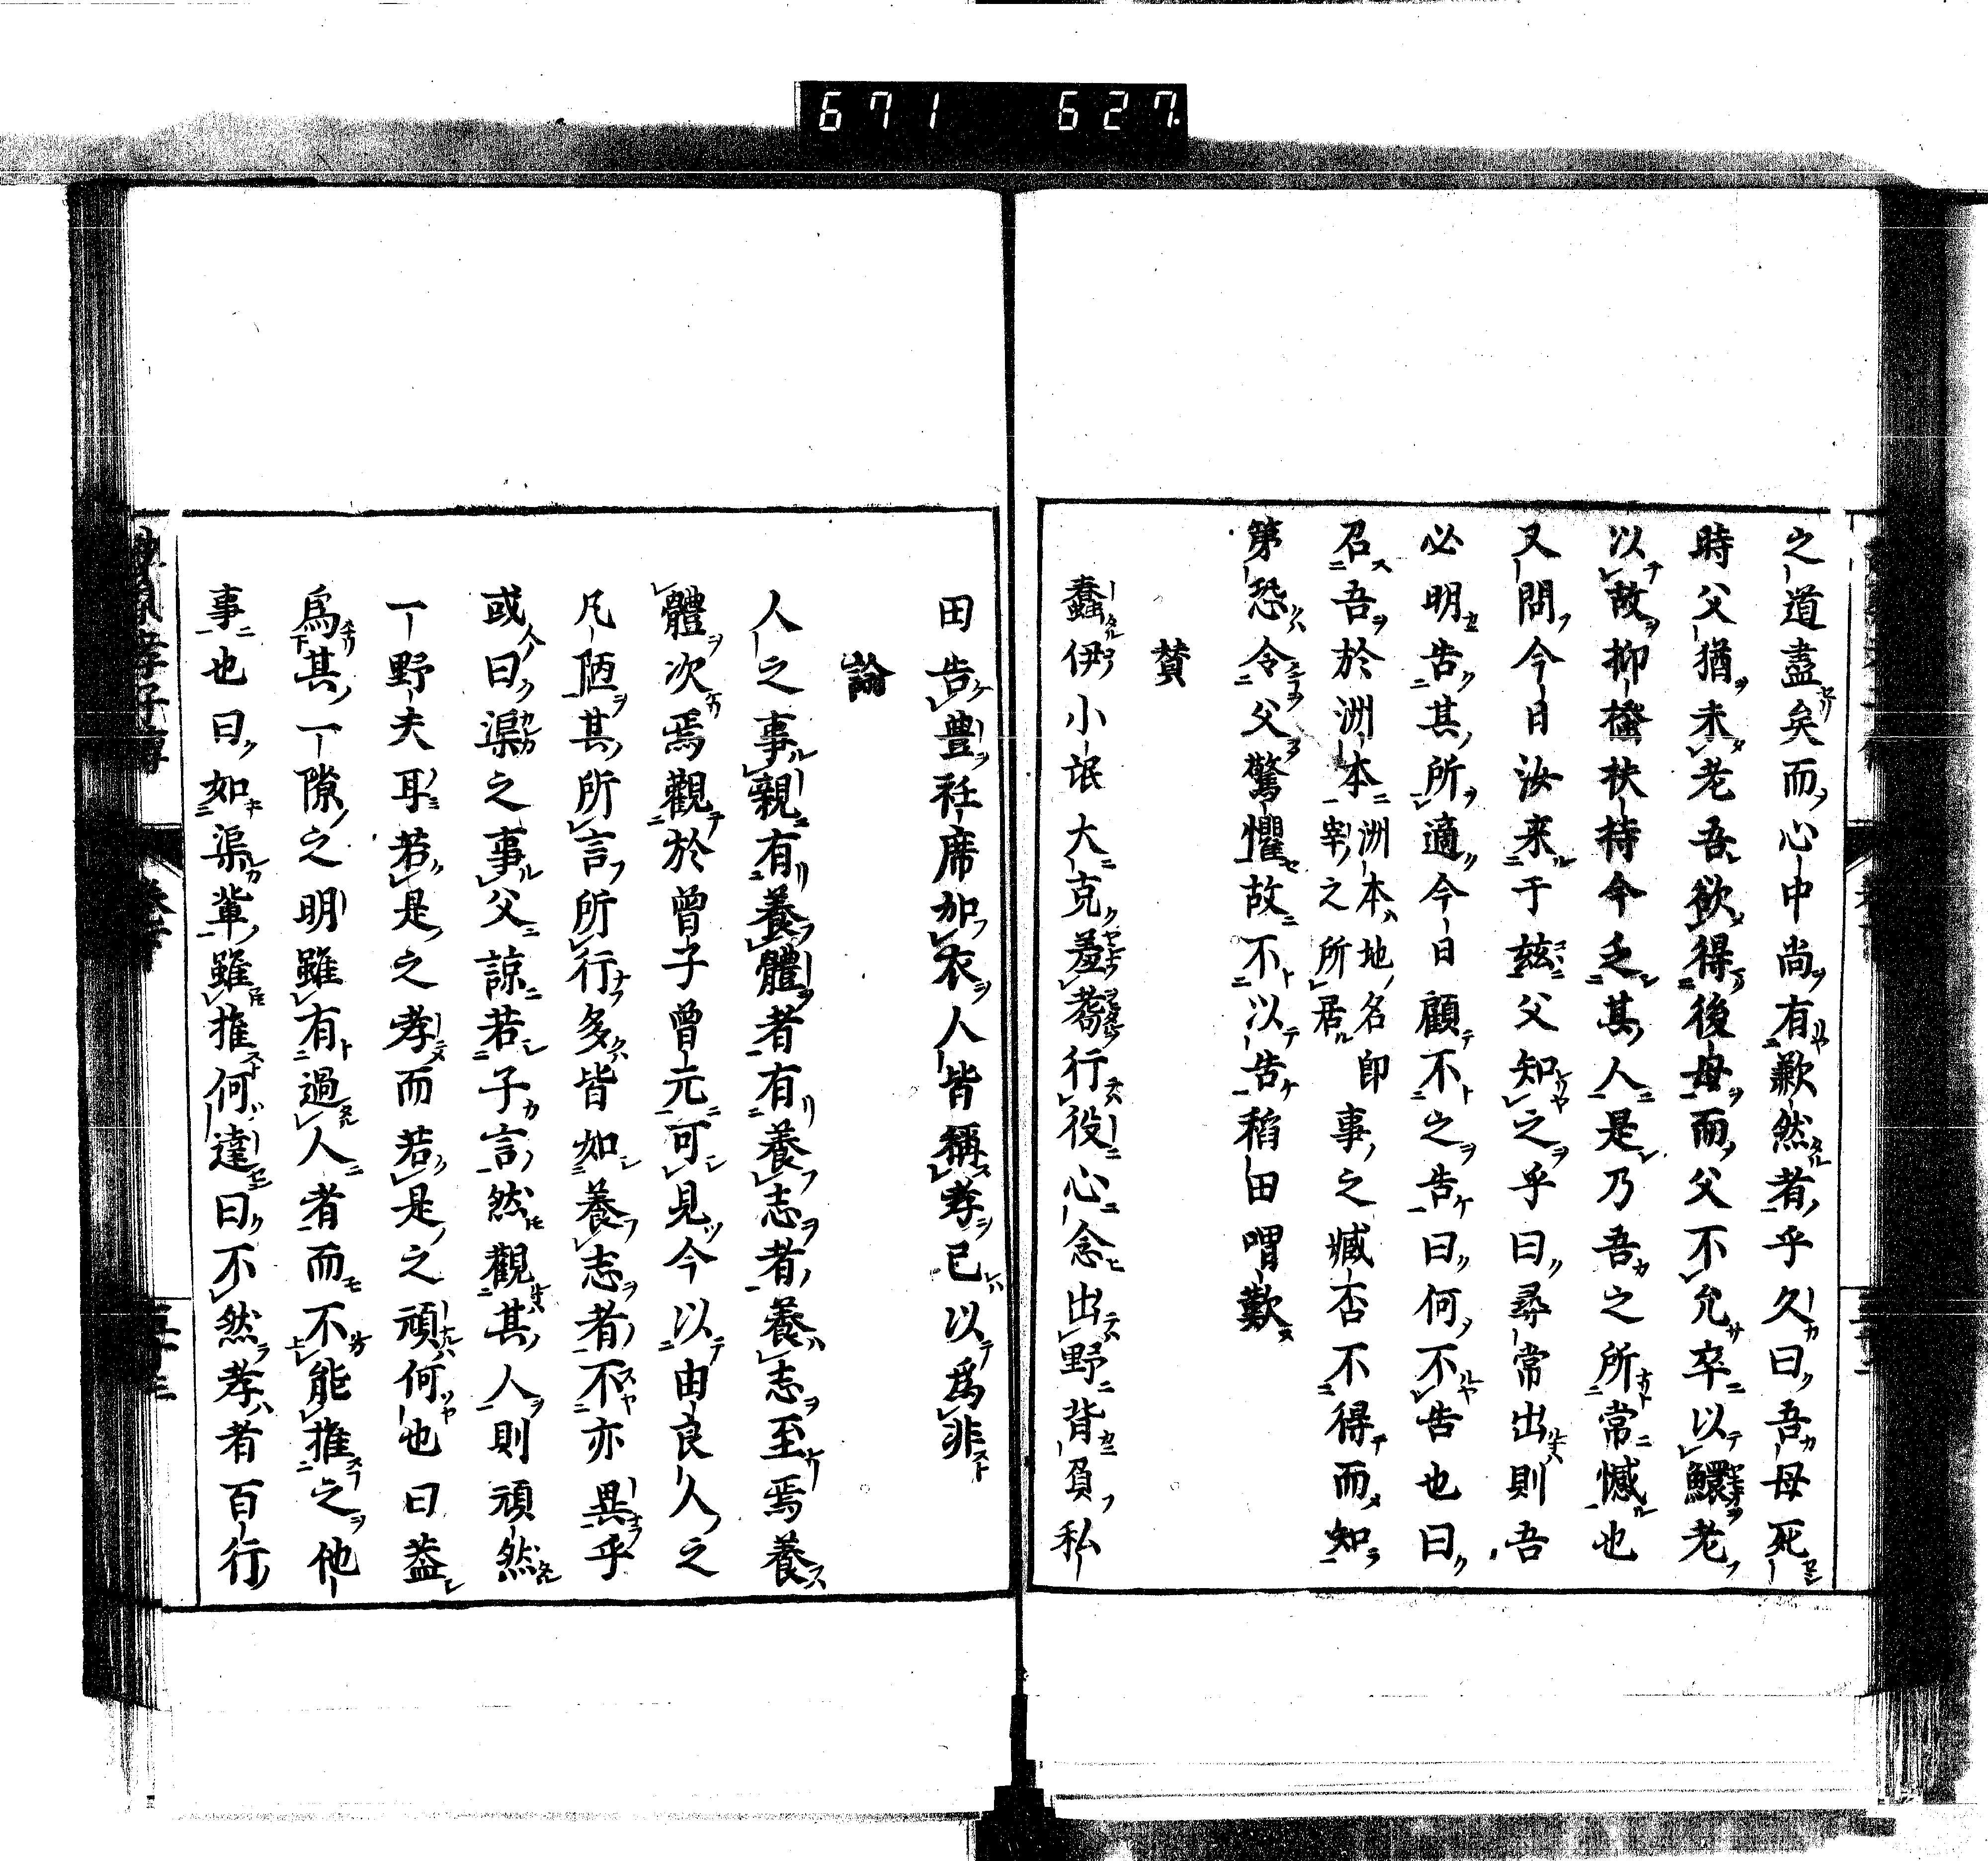 671 627.
之道盡矣而心中尚有歉然者乎久曰吾母死
時父猶未老吾欲得後母而父不允卒以鰥老
以故抑搔扶持今乏其人是乃吾之所常憾也
又問今日汝来于茲父知之乎曰尋常出則吾
必明告其所適今日顧不之告曰何不告也曰
召吾於洲本洲本地名即宰之所居事之臧否不得而知
第恐令父驚懼故不以告稻田喟歎
賛
蠢伊小氓大克羞耉行役心念出野背負私
田告豊衽席加衣人皆稱孝已以為非
論
人之事親有養體者有養志者養志至焉養
體次焉觀於曾子曾元可見今以由良久之
凡陋其所言所行多皆如養志者不亦異乎
或曰渠之事父諒若子言然觀其人則頑然
一野夫耳若是之孝而若是之頑何也曰葢
為其一隙之明雖有過人者而不能推之他
事也曰如渠輩雖推何達曰不然孝者百行